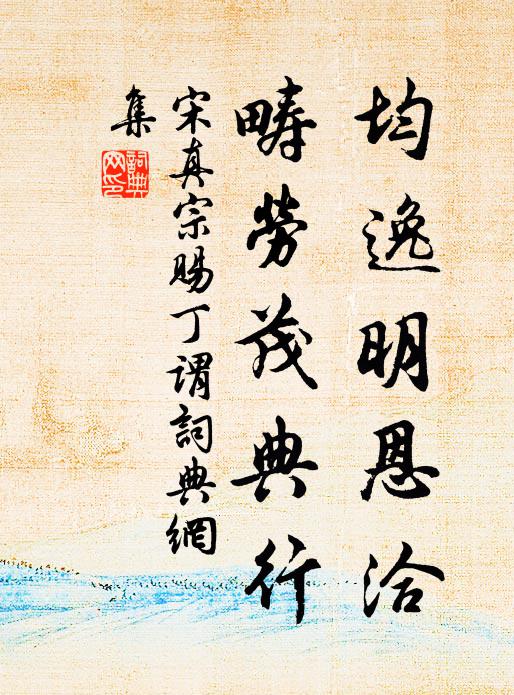 均逸明恩洽
畴勞茂典行
宋真宗賜丁謂詞典網
集
詞典
网印